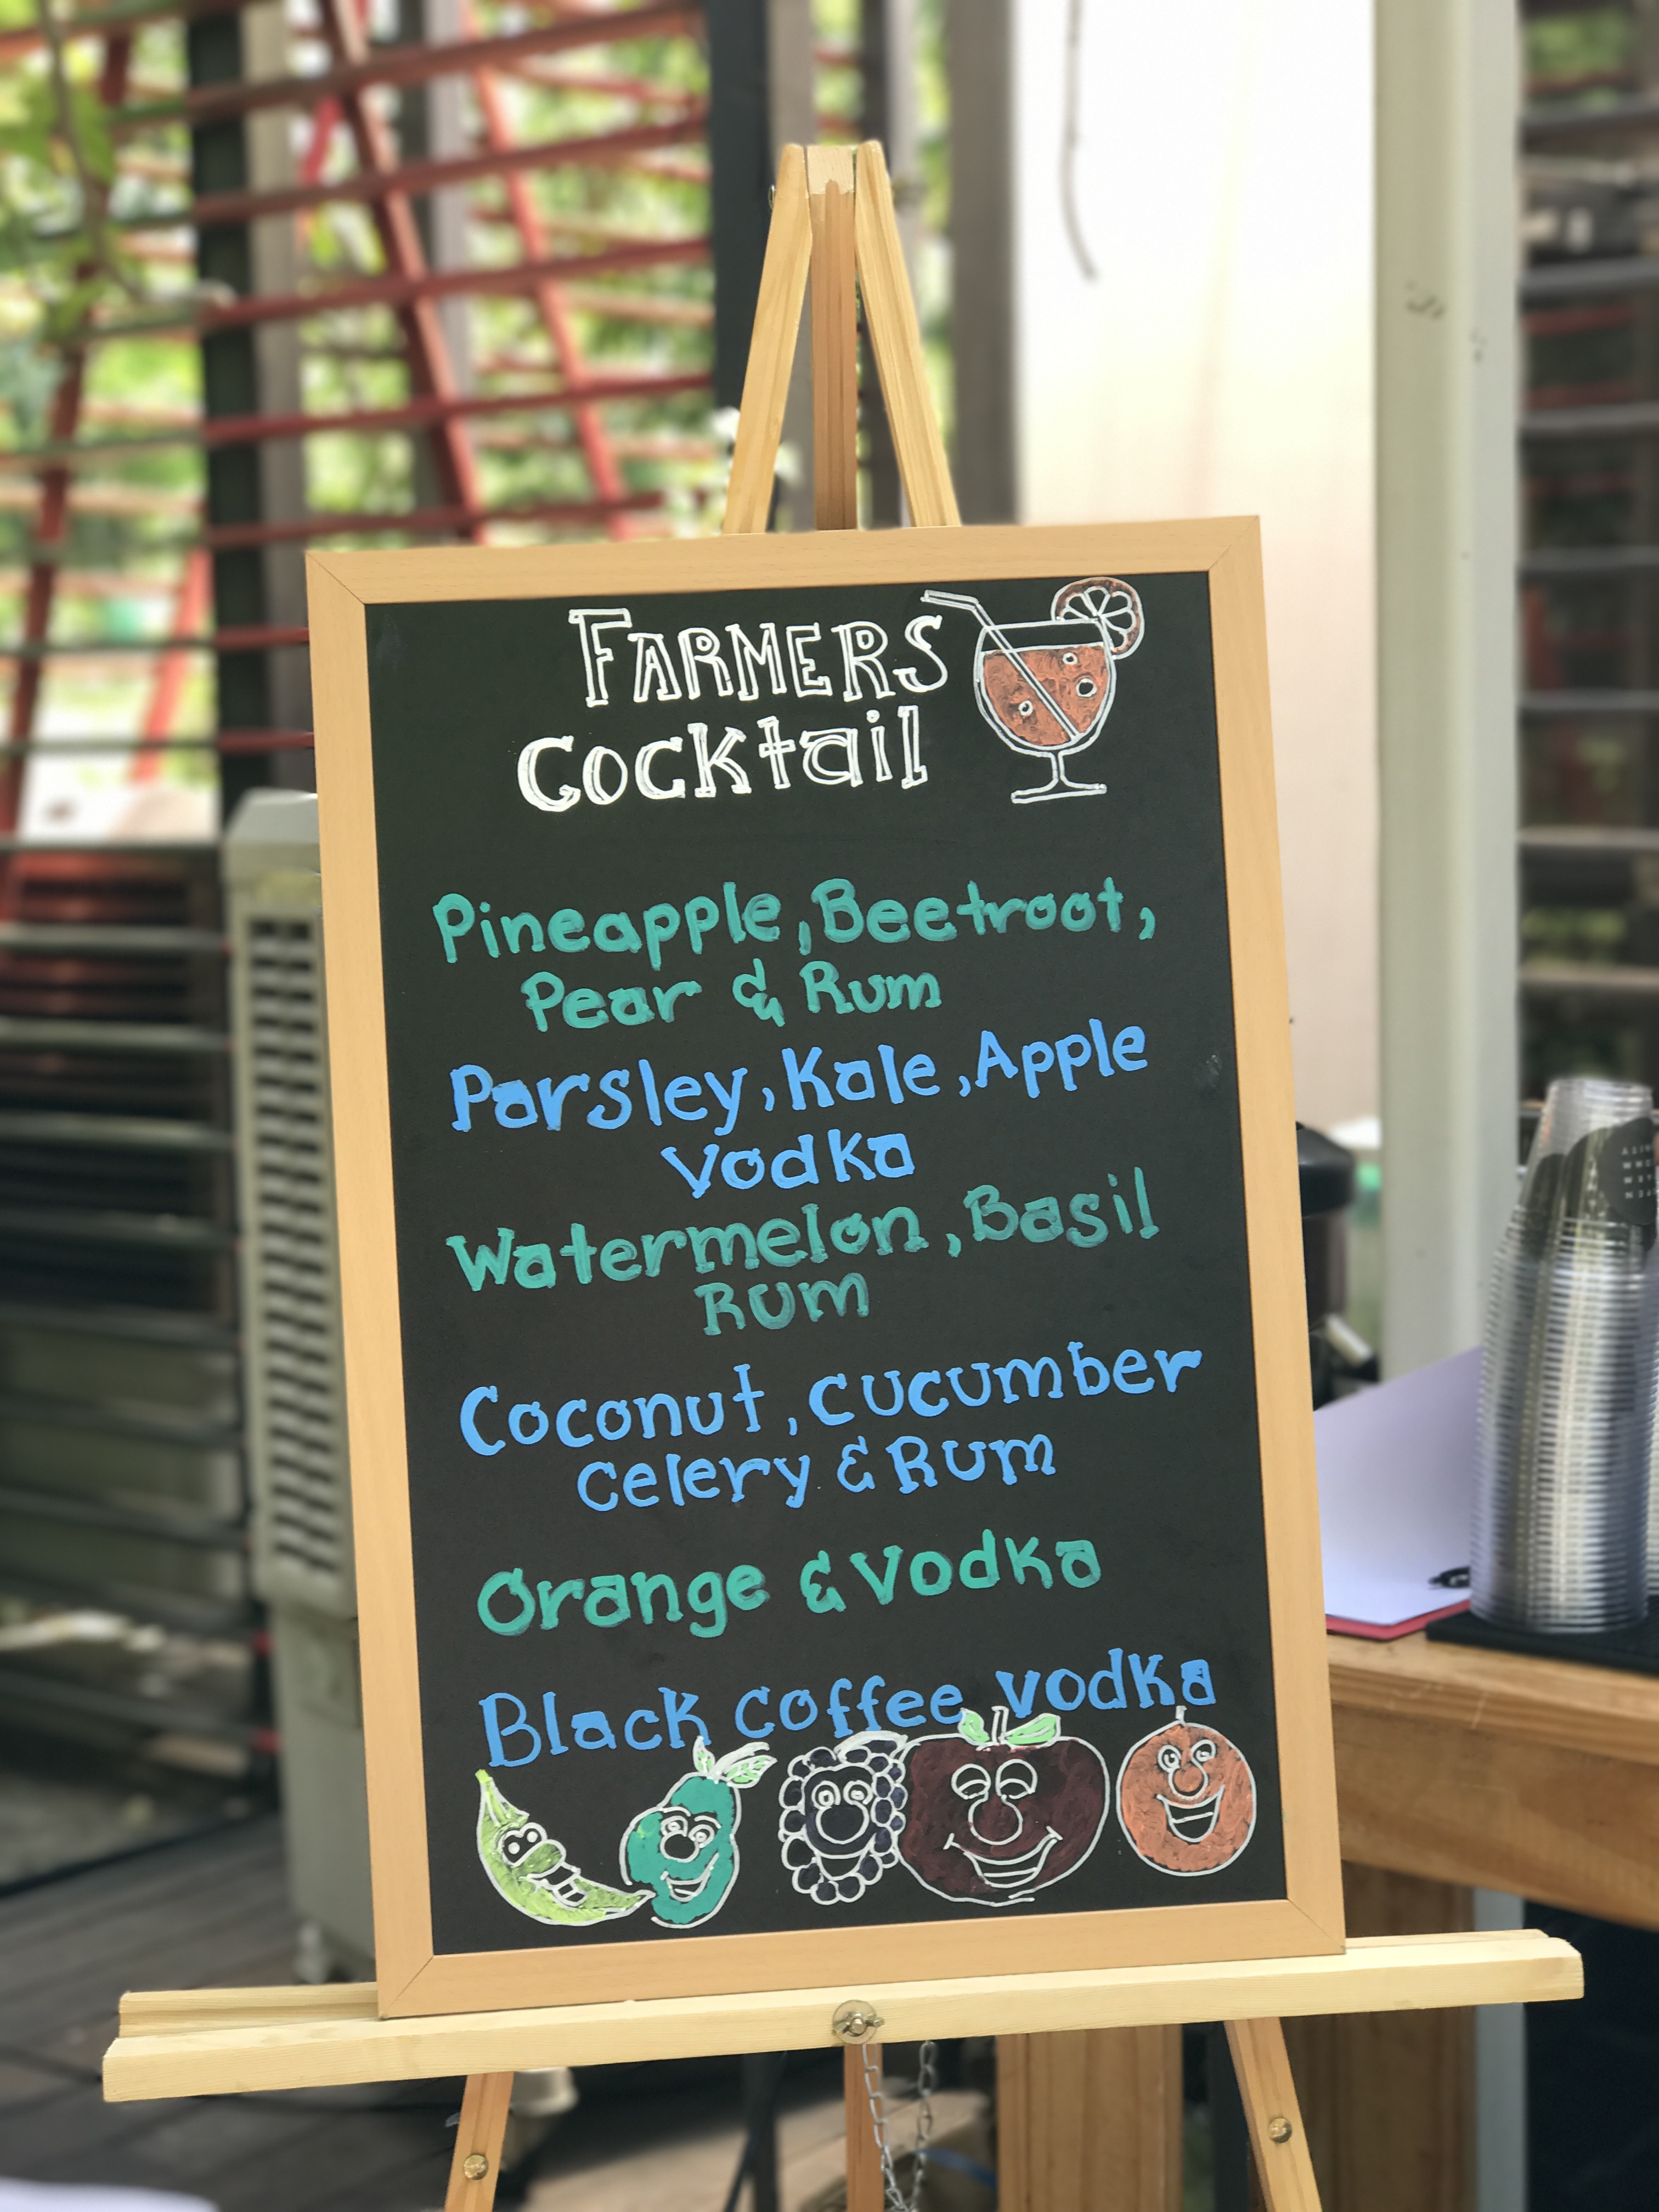 FARMERS
Cocktail
Pineapple, Beetroot,
Pear & Rum
Parsley, Kale, Apple
Vodka
Watermelon, Basil
Rum
Coconut, cucumber
celery & Rum
Orange & Vodka
Black coffee vodka